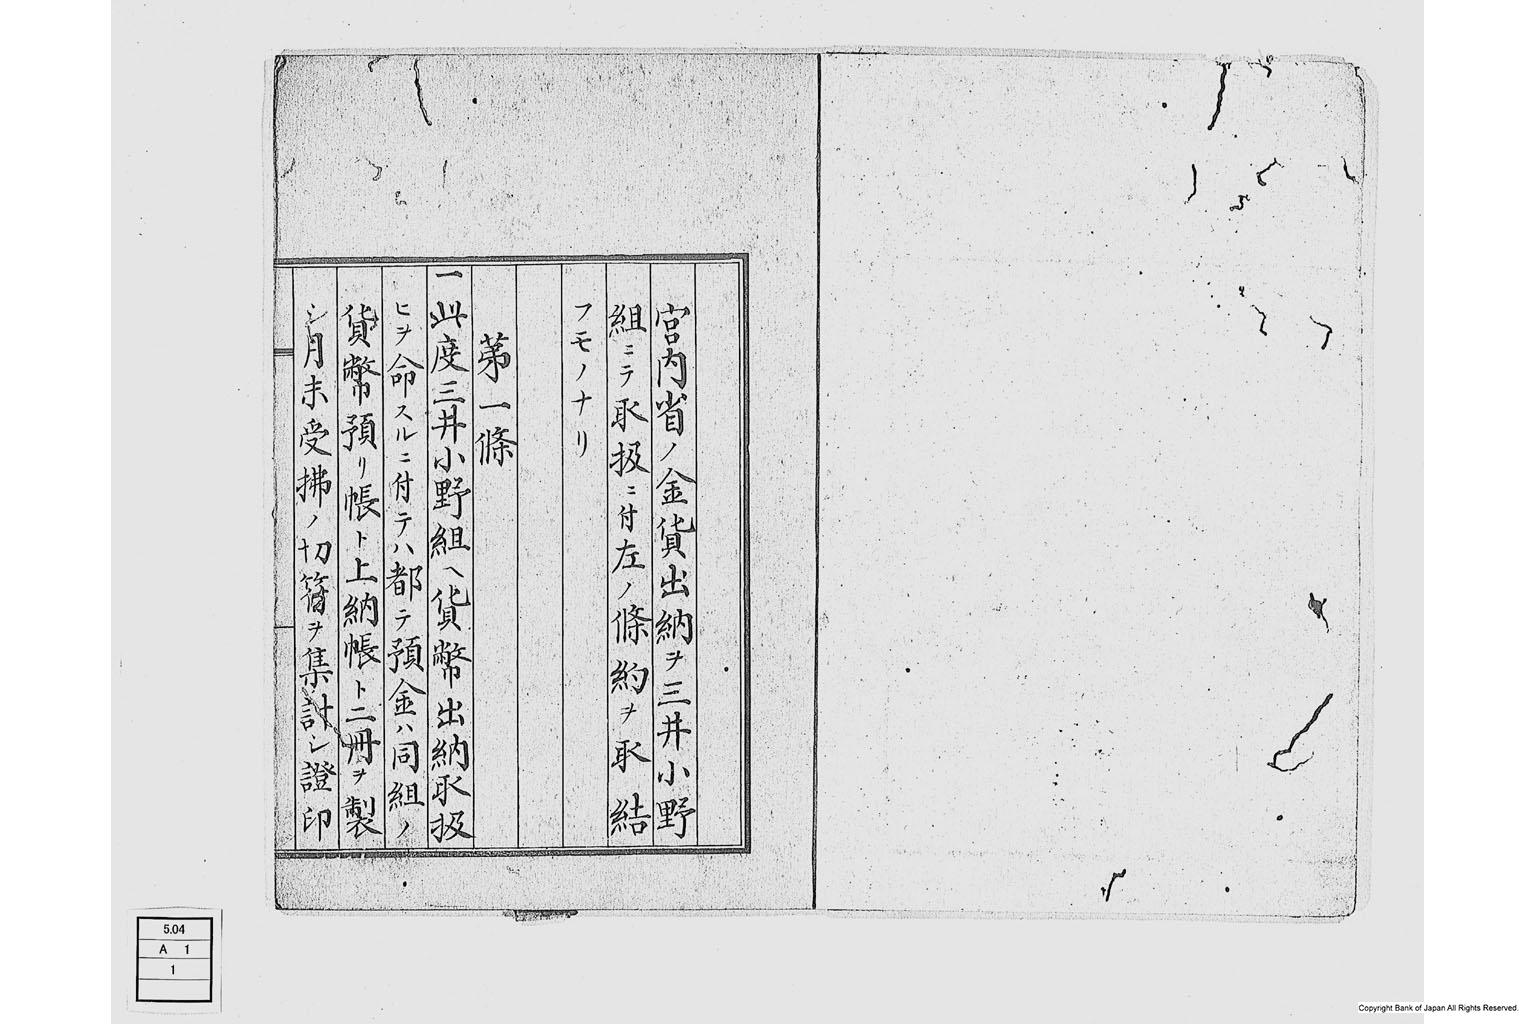 宮内省ノ金貨出納ヲ三井小野
組ニテ取扱ニ付左ノ條約ヲ取結
フモノナリ
第一條
一此度三井小野組ヘ貨幣出納取扱
ヒヲ命スルニ付テハ都テ預金ハ同組ノ
貨幣預リ帳ト上納帳ト二冊ヲ製
シ月末受拂ノ切符ヲ集計シ證印
5.04
A 1
1
Copyright Bank of Japan All Rights Reserved.